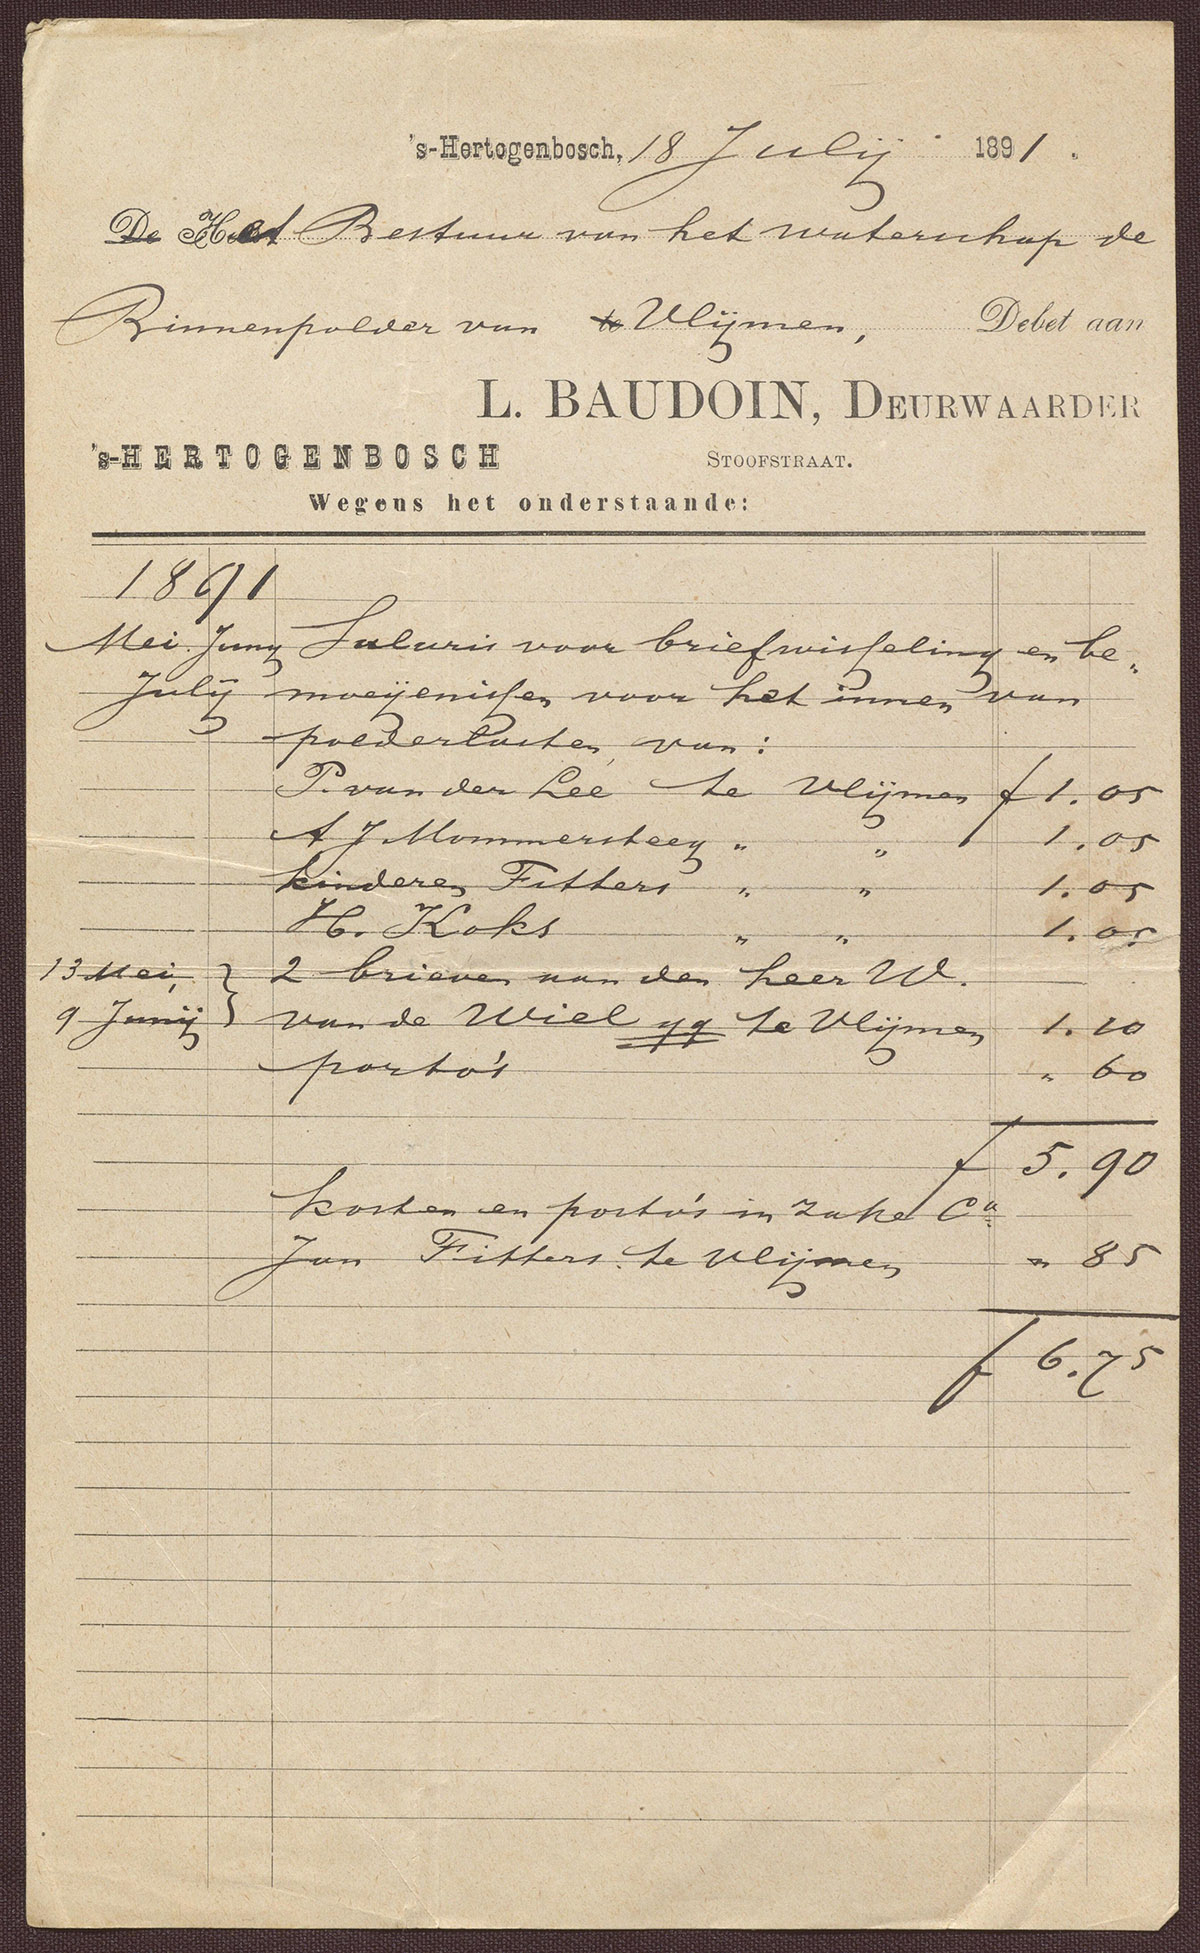 's-Hertogenbosch, 18 Julij 1891.
De Het Bestuur van het waterschap de
Binnenpolder van te Vlijmen, Debet aan
L. BAUDOIN, DEURWAARDER
's-HERTOGENBOSCH STOOFSTRAAT.
Wegens het onderstaande:
1891
Mei. Junij Salaris voor briefwisseling en be„
Julij moeijenissen voor het innen van
polderlasten van:
P. van der Lee te Vlijmen f 1.05
A J Mommersteeg „ „ 1.05
kinderen Fitters „ „ 1.05
H. Koks „ „ 1.05
13 Mei, } 2 brieven aan den heer W.
9 Junij van de Wiel gg te Vlijmen 1.10
porto's „ 60
f 5.90
kosten en porto's in zake Ca
Jan Fitters te Vlijmen „ 85
f 6.75